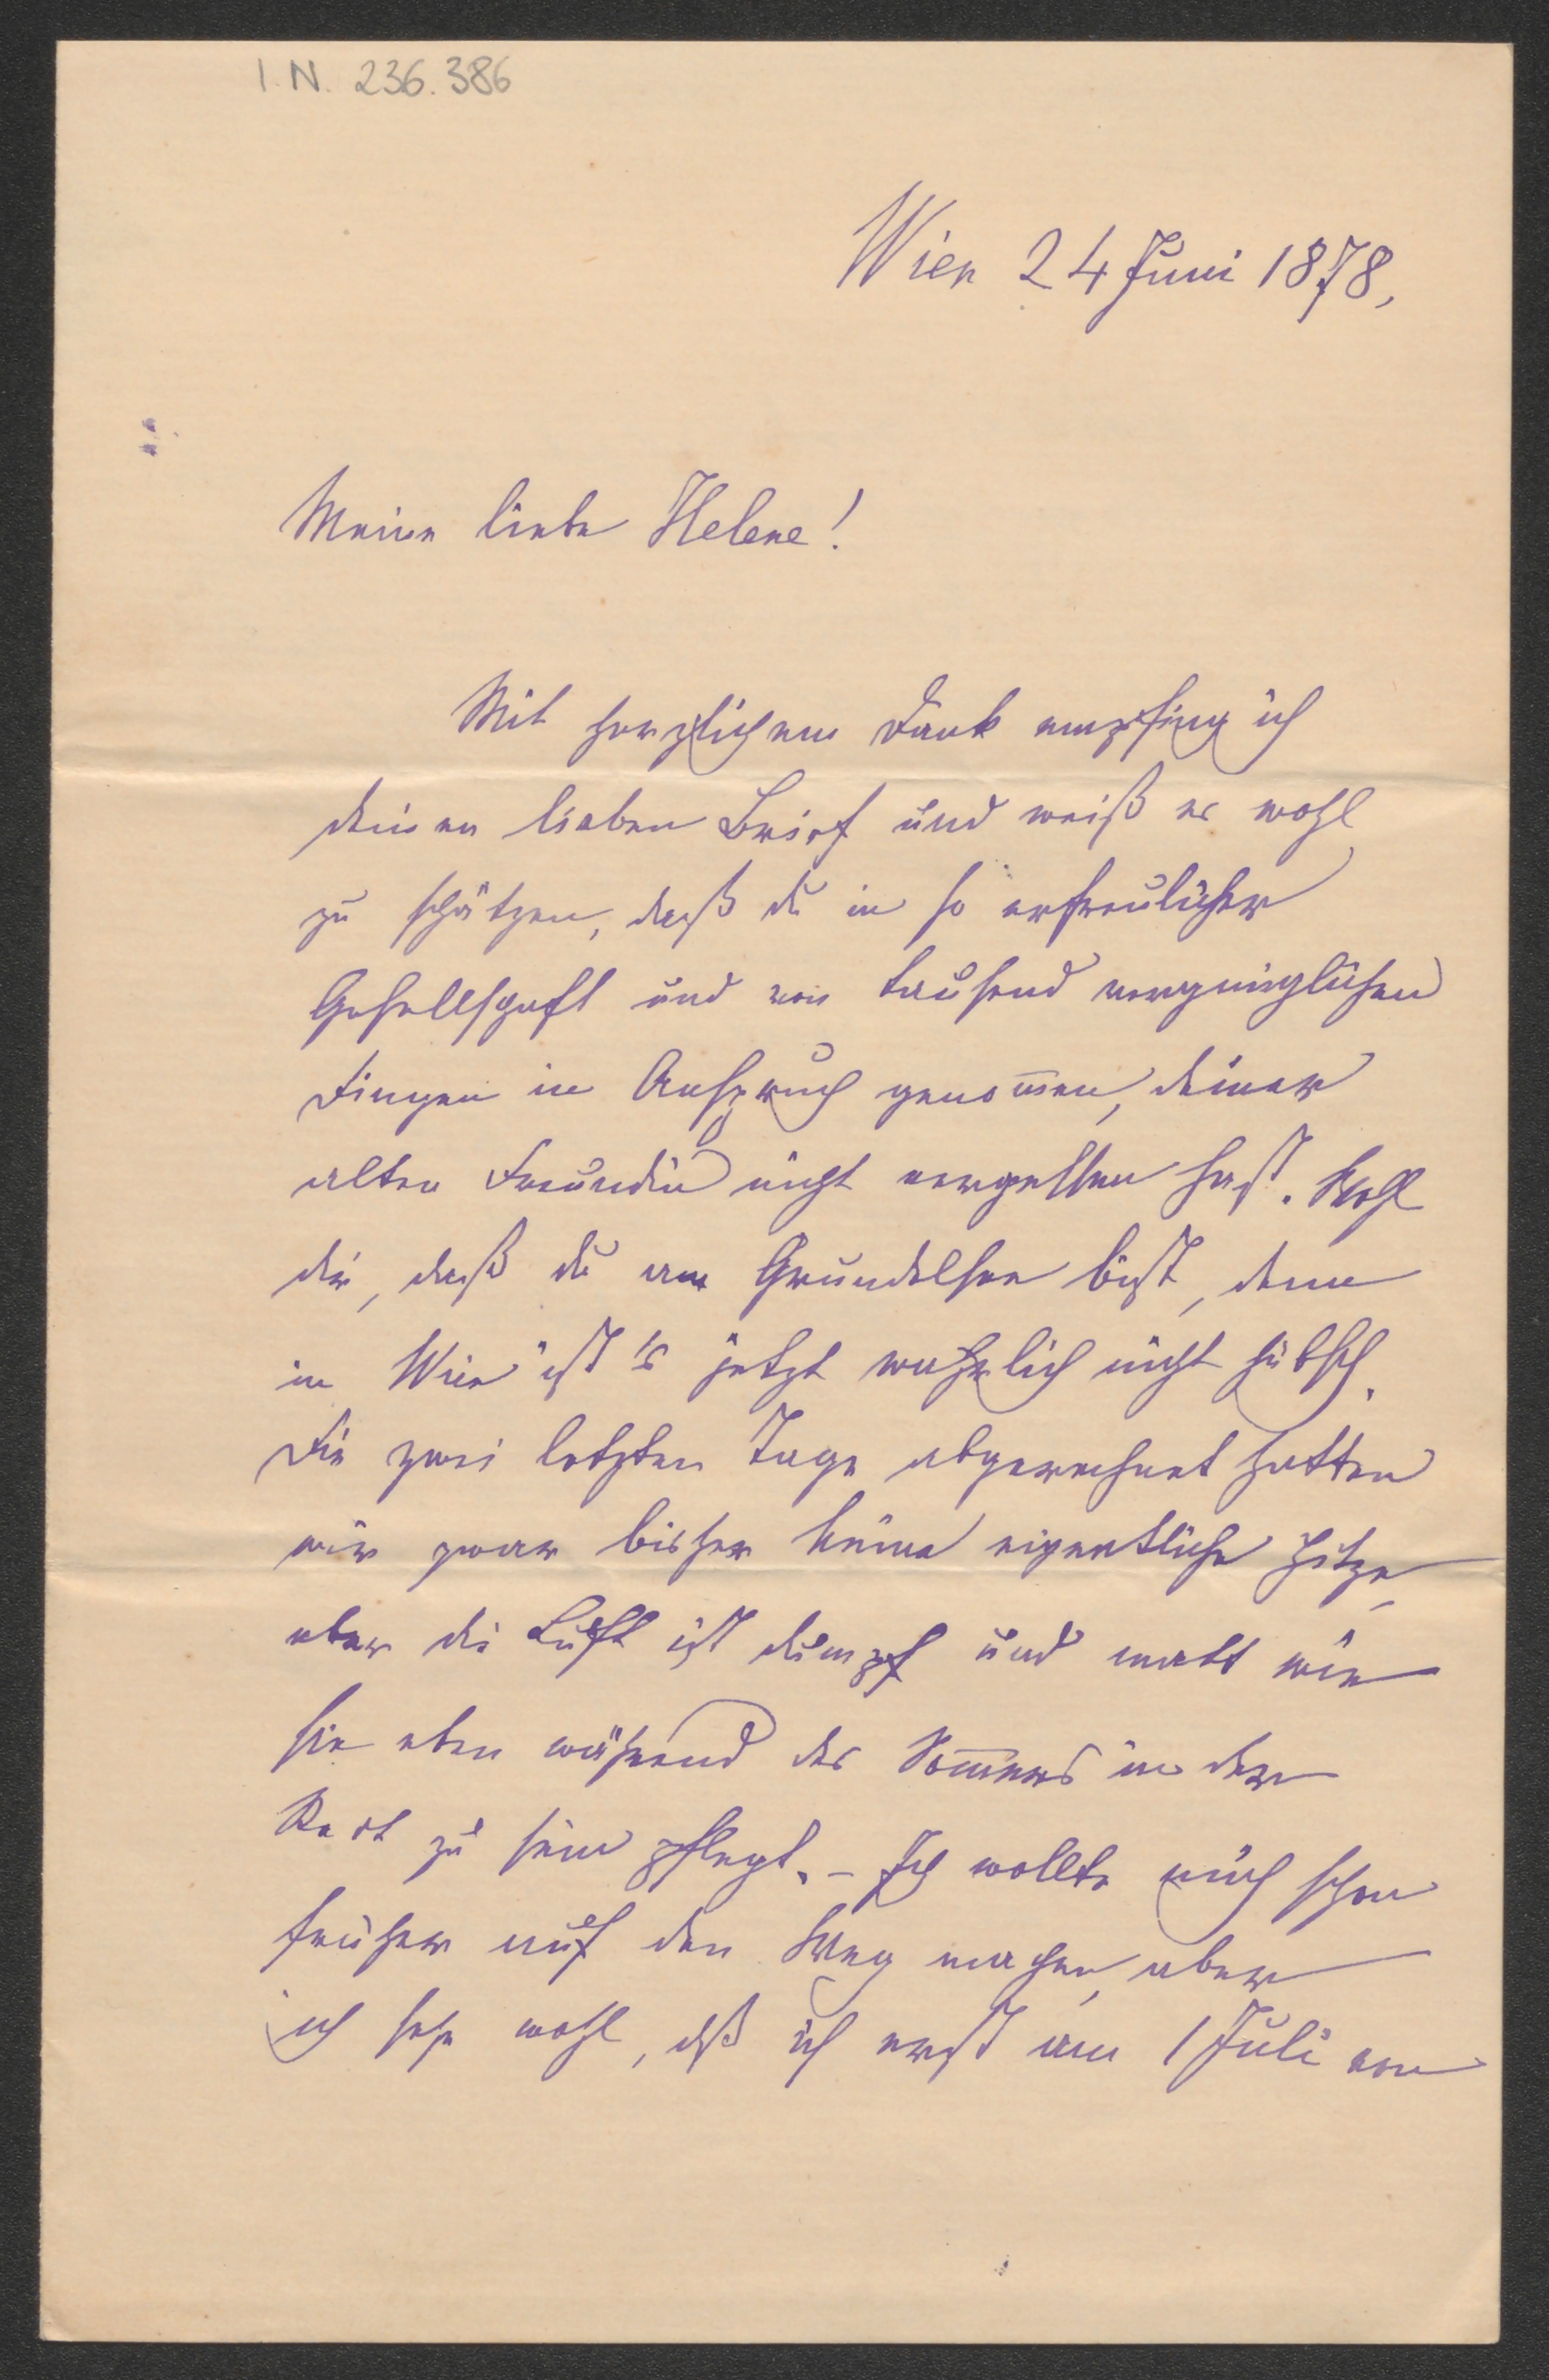 I.N. 236.386
Wien 24 Juni 1878,
Meine liebe Helene!
Mit herzlichem Dank empfing ich
deinen lieben Brief und weiß es wohl
zu schätzen, daß du in so erfreulicher
Gesellschaft und von tausend vergnüglichen
Dingen in Anspruch genom̅en, deiner
alten Freundin nicht vergessen hast. Wohl
dir, daß du am Grundelsee bist, denn
in Wien ist's jetzt wahrlich nicht hübsch.
Die zwei letzten Tage abgerechnet hatten
wir zwar bisher keine eigentliche Hitze,
aber die Luft ist dumpf und matt wie
sie eben während des Som̅ers in der
zu sein pflegt. – Ich wollte mich schon
früher auf den Weg machen, aber
ich sehe wohl, dß ich erst am 1 Juli von